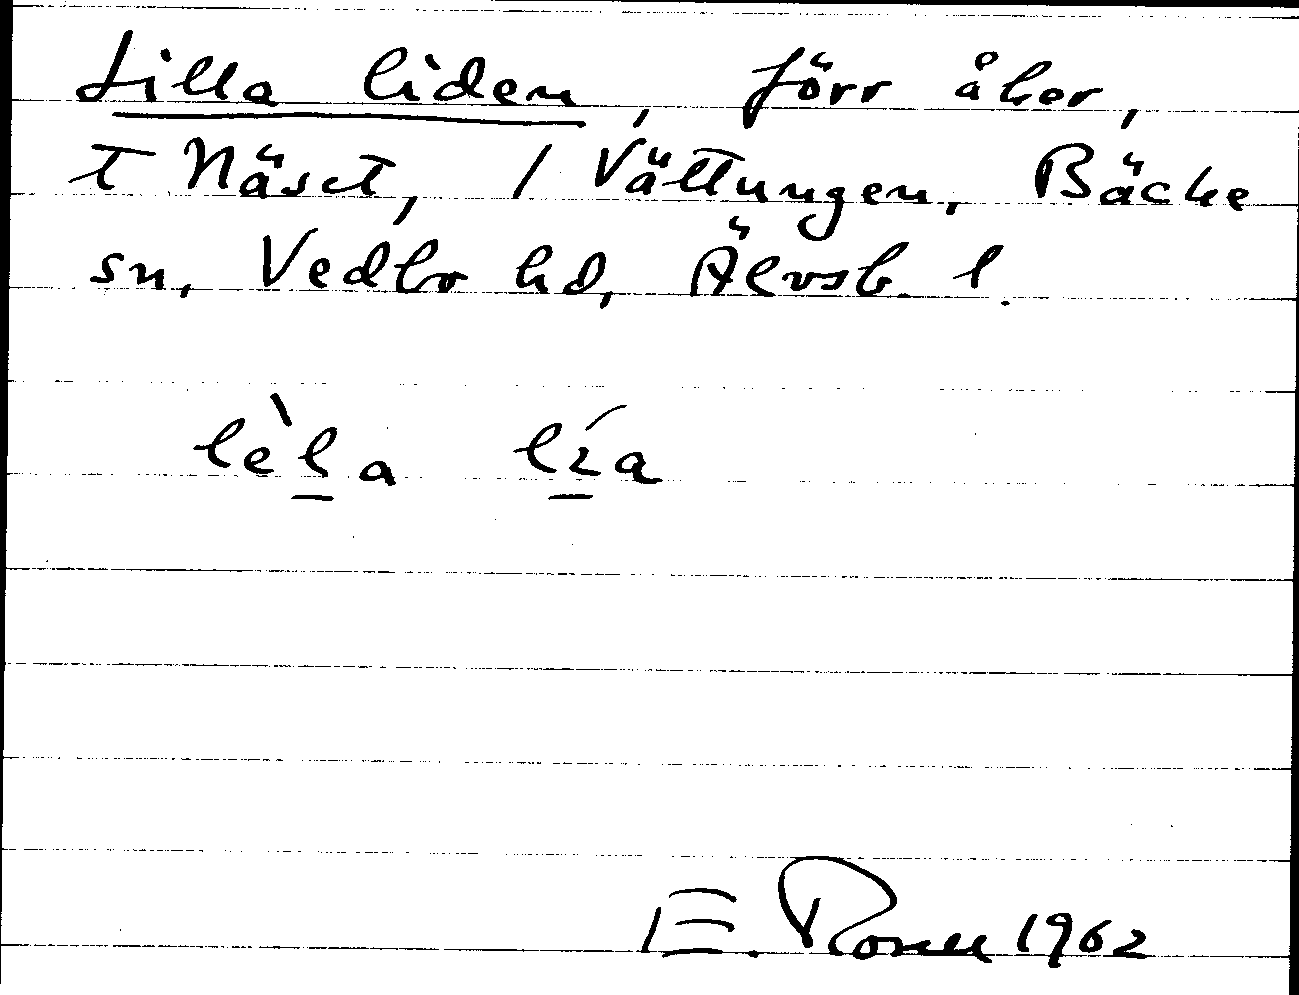 Lilla liden, förr åker,
t Näset, 1 Vättungen, Bäcke
sn, Vedbo hd, Älvsb. l.
lèl̲a lí̲a
E. Rosell 1962